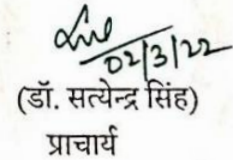 02/3/22
(डॉ. सत्येन्द्र सिंह)
प्राचार्य